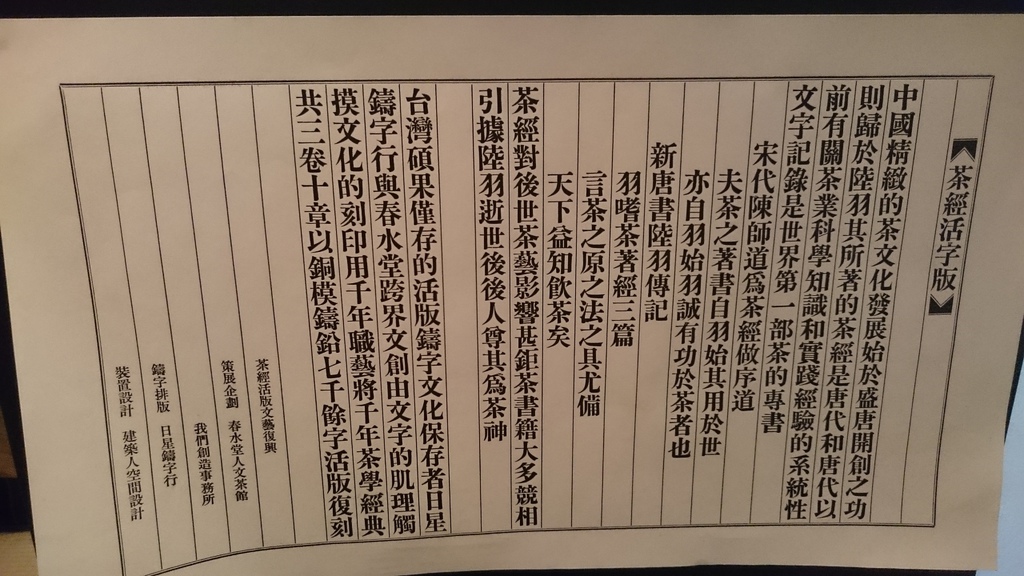 茶經活字版
中國精緻的茶文化發展始於盛唐開創之功
則歸於陸羽其所著的茶經是唐代和唐代以
前有關茶業科學知識和實踐經驗的系統性
文字記錄是世界第一部茶的專書
宋代陳師道為茶經做序道
夫茶之著書自羽始其用於世
亦自羽始羽誠有功於茶者也
新唐書陸羽傳記
羽嗜茶著經三篇
言茶之原之法之具尤備
天下益知飲茶矣
茶經對後世茶藝影響甚鉅茶書籍大多競相
引據陸羽逝世後後人尊其為茶神
台灣碩果僅存的活版鑄字文化保存者日星
鑄字行與春水堂跨界文創由文字的肌理觸
摸文化的刻印用千年職藝將千年茶學經典
共三卷十章以銅模鑄鉛七千餘字活版復刻
茶經活版文藝復興
策展企劃 春水堂人文茶館
我們創造事務所
鑄字排版 日星鑄字行
裝置設計 建築人空間設計